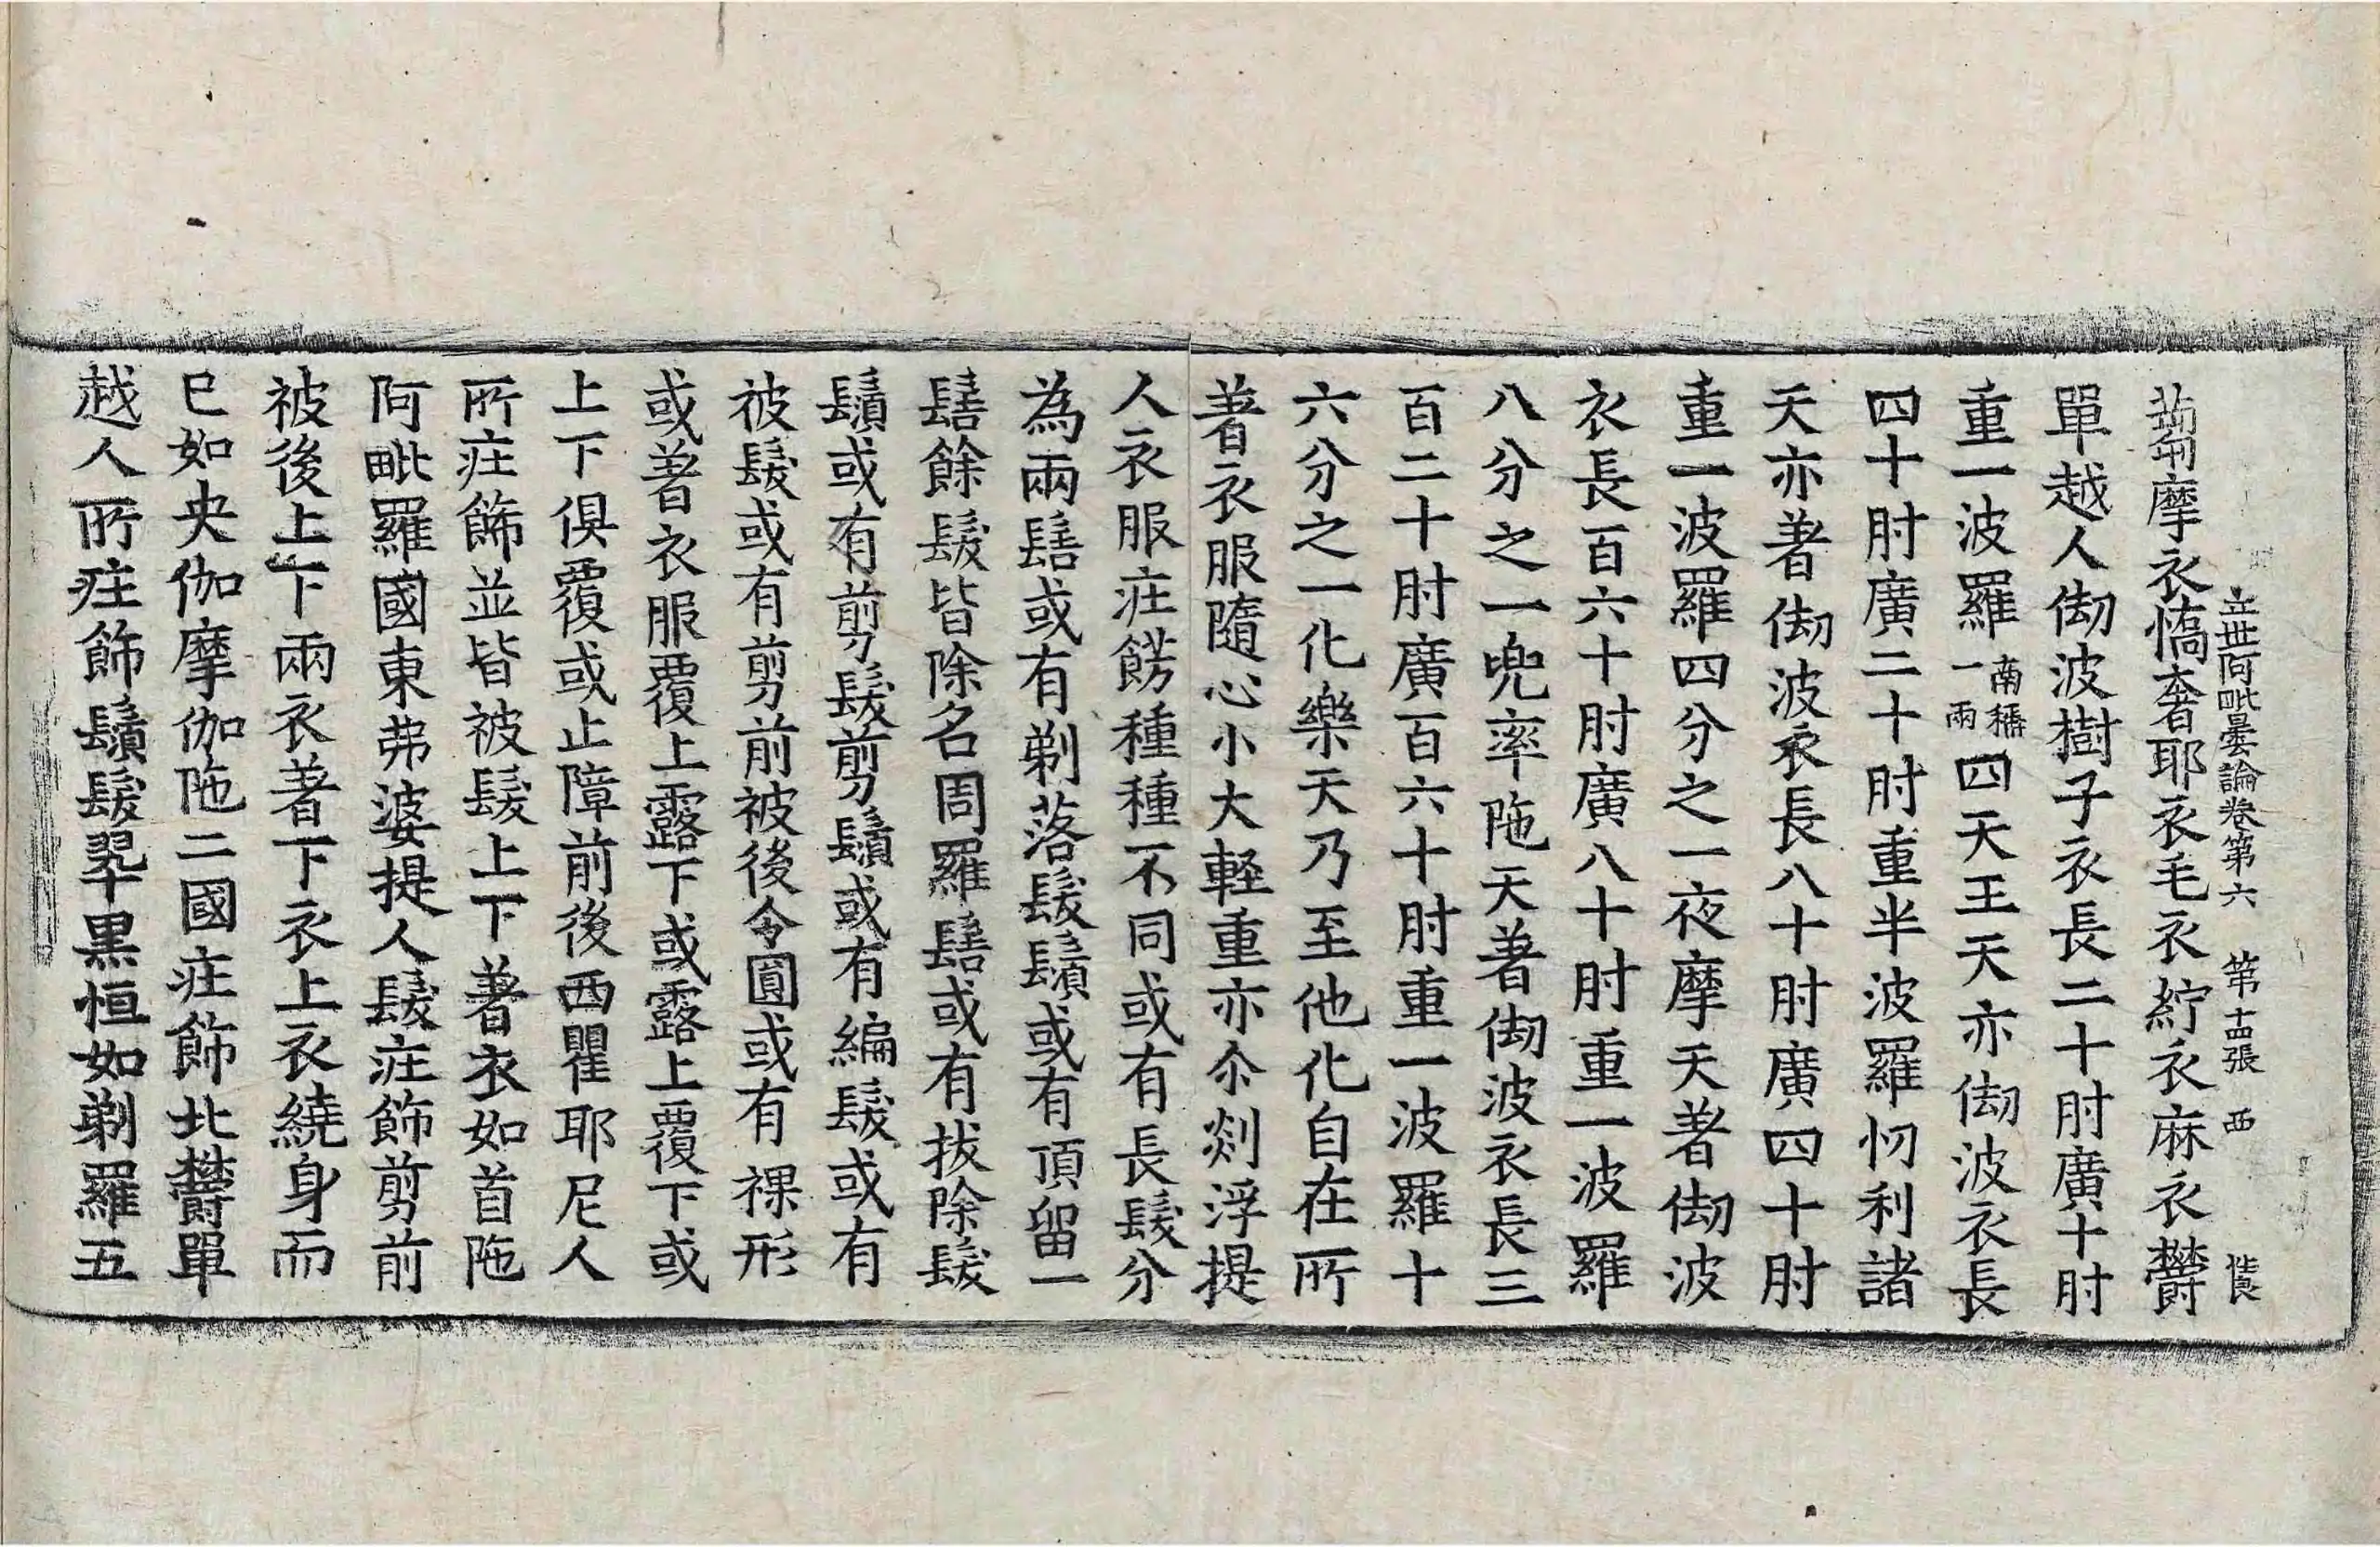 立世阿毗曇論卷第六 第十四張 西
摩衣憍奢耶衣毛衣紵衣麻衣欝
單越人㓛波樹子衣長二十肘廣十肘
重一波羅南稱一兩四天王天亦㓛波衣長
四十肘廣二十肘重半波羅忉利諸
天亦著㓛波衣長八十肘廣四十肘
重一波羅四分之一夜摩天著㓛波
衣長百六十肘廣八十肘重一波羅
八分之一兜率陁天著㓛波衣長三
百二十肘廣百六十肘重一波羅十
六分之一化樂天乃至他化自在所
著衣服隨心小大輕重亦尒剡浮提
人衣服㽵餝種種不同或有長髮分
為兩髻或有剃落髮鬚或有頂留一
髻餘髮皆除名周羅髻或有拔除髮
鬚或有剪髮剪鬚或有編髮或有
被髮或有剪前被後令圓或有裸形
或著衣服覆上露下或露上覆下或
上下俱覆或止障前後西瞿耶尼人
所㽵飾並皆被髮上下著衣如首陁
阿毗羅國東弗婆提人髮㽵飾剪前
被後上下兩衣著下衣上衣繞身而
已如央伽摩伽陁二國㽵飾北欝單
越人所㽵飾鬚髮翠黑恒如剃羅五